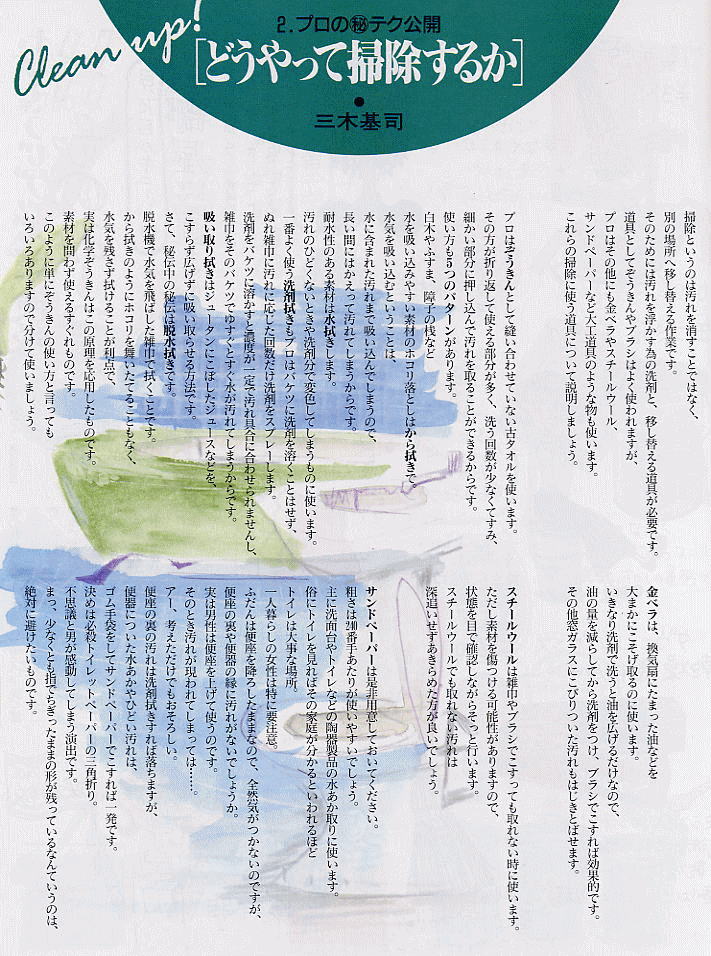 Clean up!
2.プロの㊙テク公開
[どうやって掃除するか]
●
三木基司
掃除というのは汚れを消すことではなく、
別の場所へ移し替える作業です。
そのためには汚れを浮かす為の洗剤と、移し替える道具が必要です。
道具としてぞうきんやブラシはよく使われますが、
プロはその他にも金ベラやスチールウール、
サンドペーパーなど大工道具のような物も使います。
これらの掃除に使う道具について説明しましょう。
プロはぞうきんとして縫い合わせていない古タオルを使います。
その方が折り返して使える部分が多く、洗う回数が少なくてすみ、
細かい部分に押し込んで汚れを取ることができるからです。
使い方も5つのパターンがあります。
白木やふすま、障子の桟など
水を吸い込みやすい素材のホコリ落としはから拭きで、
水気を吸い込むということは、
水に含まれた汚れまで吸い込んでしまうので、
長い間にはかえって汚れてしまうからです。
耐水性のある素材は水拭きします。
汚れのひどくないときや洗剤分で変色してしまうものに使います。
一番よく使う洗剤拭きもプロはバケツに洗剤を溶くことはせず、
ぬれ雑巾に汚れに応じた回数だけ洗剤をスプレーします。
洗剤をバケツに溶かすと濃度が一定で汚れ具合に合わせられませんし、
雑巾をそのバケツでゆすぐとすぐ水が汚れてしまうからです。
吸い取り拭きはジュータンにこぼしたジュースなどを、
こすらず広げずに吸い取らせる方法です。
さて、秘伝中の秘伝は脱水拭きです。
脱水機で水気を飛ばした雑巾で拭くことです。
から拭きのようにホコリを舞いたてることもなく、
水気を残さず拭けることが利点で、
実は化学ぞうきんはこの原理を応用したものです。
素材を問わず使えるすぐれものです。
このように単にぞうきんの使い方と言っても
いろいろありますので分けて使いましょう。
金ベラは、換気扇にたまった油などを
大まかにこそげ取るのに使います。
いきなり洗剤で洗うと油を広げるだけなので、
油の量を減らしてから洗剤をつけ、ブラシでこすれば効果的です。
その他窓ガラスにこびりついた汚れもはじきとばせます。
スチールウールは雑巾やブラシでこすっても取れない時に使います。
ただし素材を傷つける可能性がありますので、
状態を目で確認しながらそっと行います。
スチールウールでも取れない汚れは
深追いせずあきらめた方が良いでしょう。
サンドペーパーは是非用意しておいてください。
粗さは240番手あたりが使いやすいでしょう。
主に洗面台やトイレなどの陶器製品の水あか取りに使います。
俗にトイレを見ればその家庭が分かるといわれるほど
トイレは大事な場所。
一人暮らしの女性は特に要注意。
ふだんは便座を降ろしたままなので、全然気がつかないのですが、
便座の裏や便器の縁に汚れがないでしょうか。
実は男性は便座を上げて使うのです。
そのとき汚れが現われてしまっては……。
アー、考えただけでもおそろしい。
便座の裏の汚れは洗剤拭きすれば落ちますが、
便器についた水あかやひどい汚れは、
ゴム手袋をしてサンドペーパーでこすれば一発です。
決めは必殺トイレットペーパーの三角折り。
不思議と男が感動してしまう演出です。
まっ、少なくとも指でちぎったままの形が残っているなんていうのは、
絶対に避けたいものです。